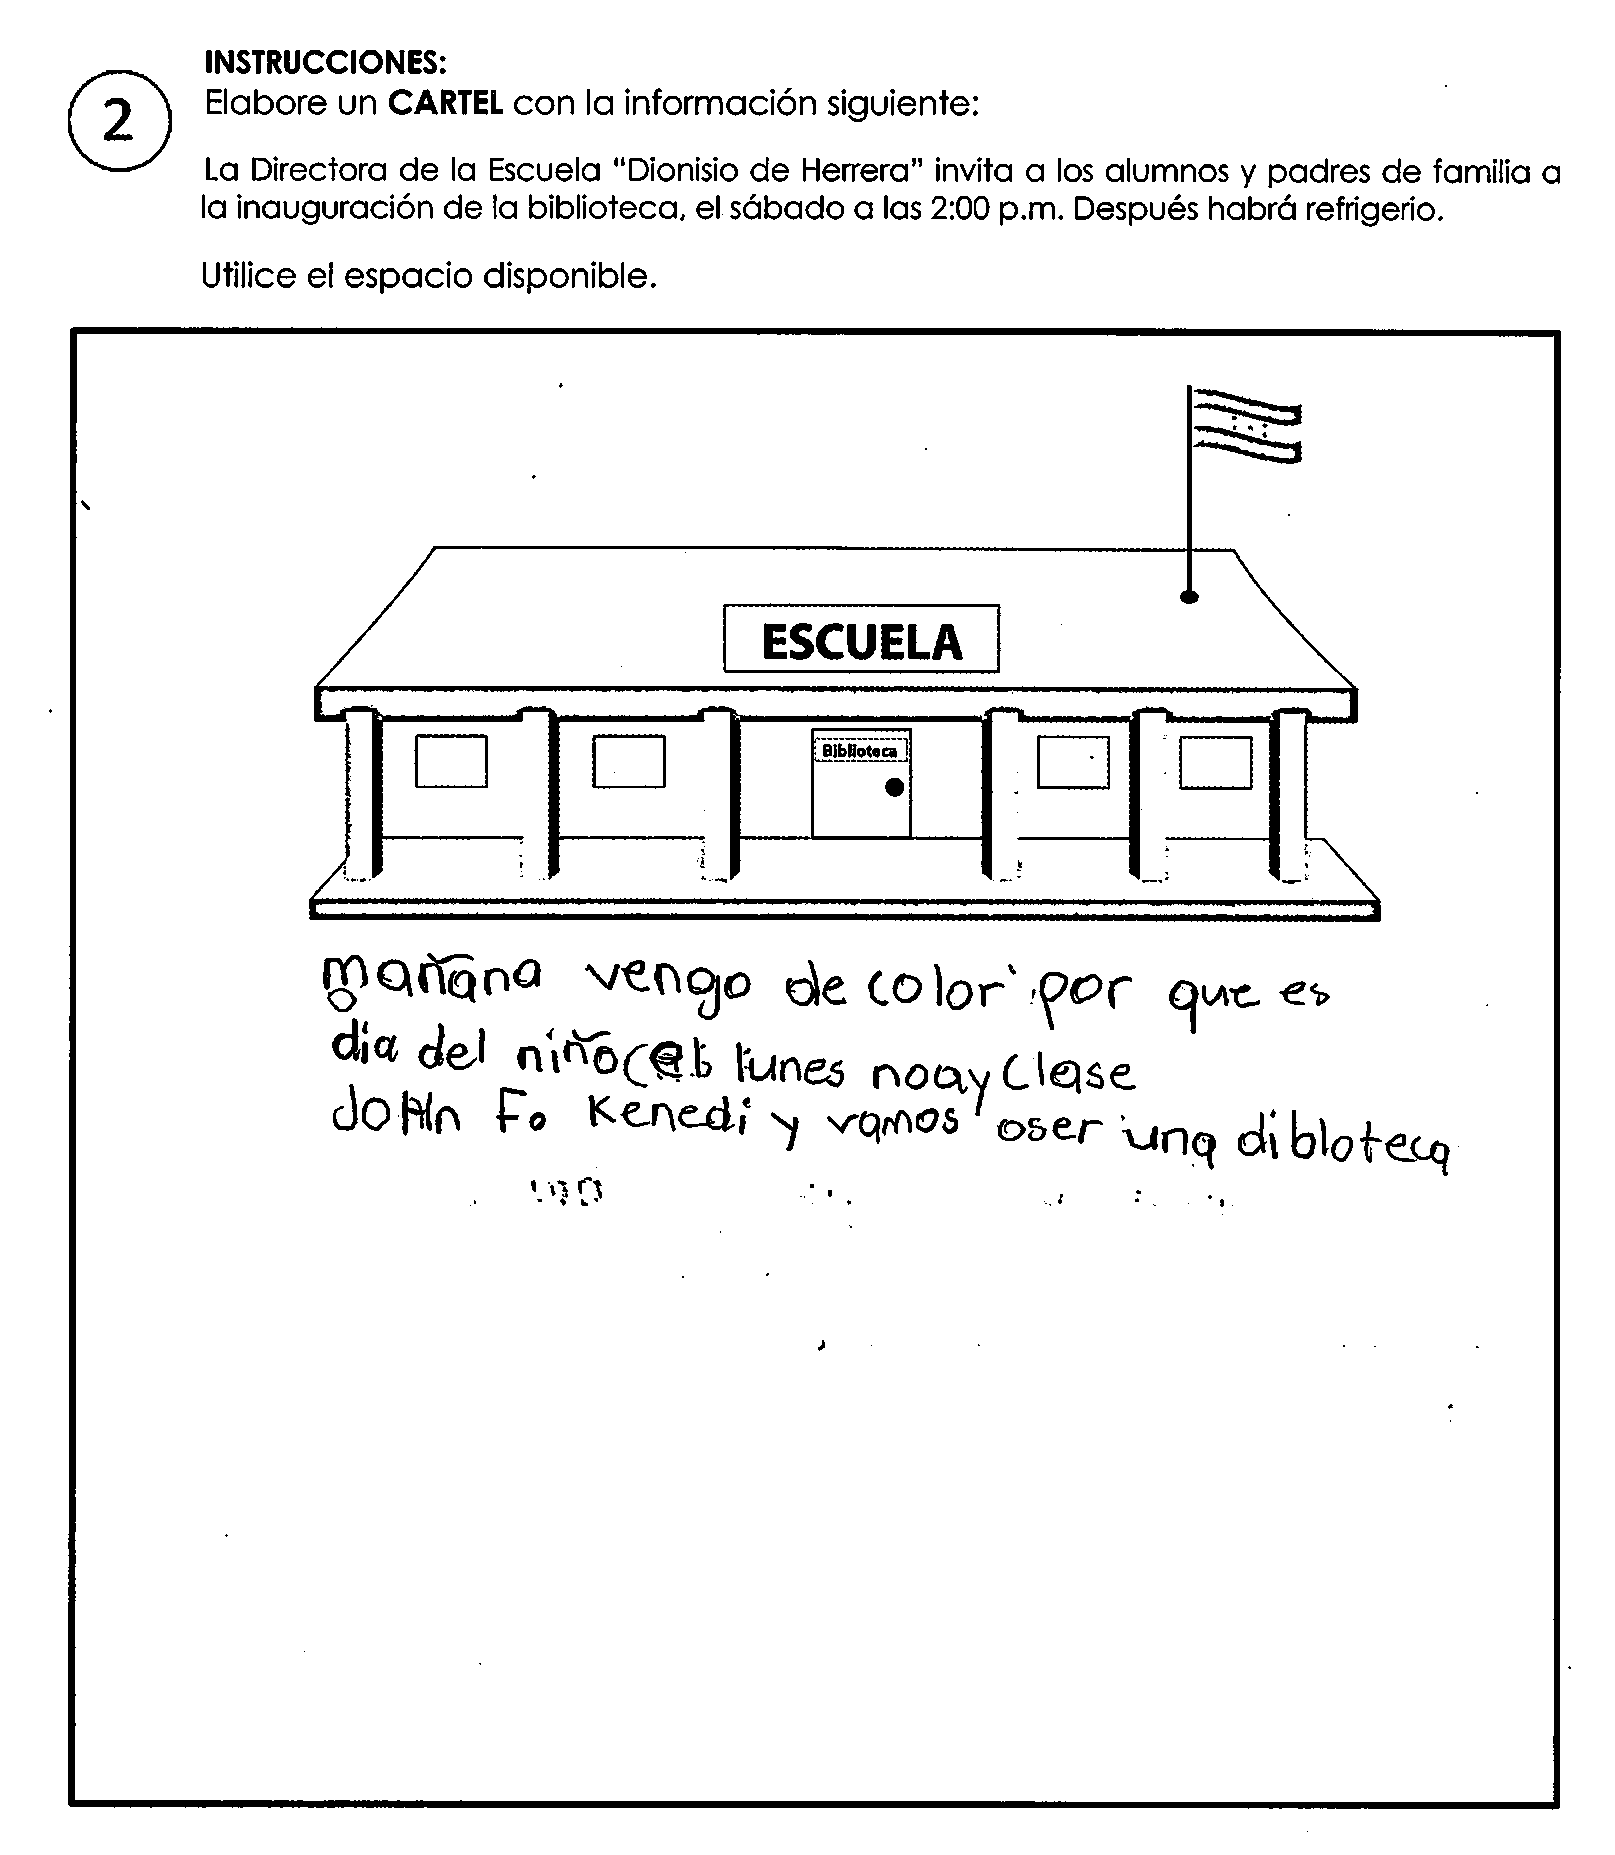 INSTRUCCIONES:
2
Elabore un CARTEL con la información siguiente:
La Directora de la Escuela "Dionisio de Herrera" invita a los alumnos y padres de familia a
la inauguración de la biblioteca, el sábado a las 2:00 p.m. Después habrá refrigerio.
Utilice el espacio disponible.
ESCUELA
Biblioteca
mañana vengo de color por que es
dia del niño lunes noay clase
JOHn Fo Kenedi y vamos oser una dibloteca